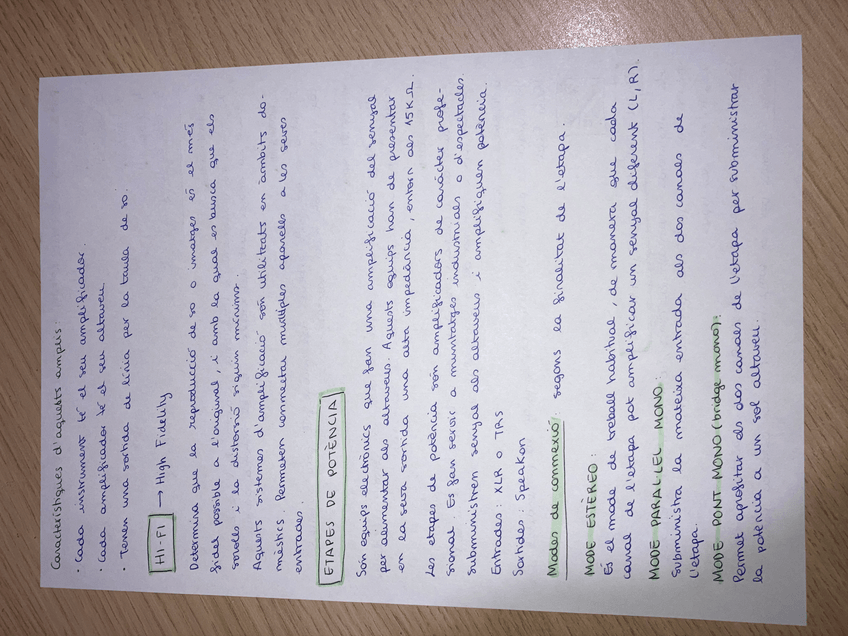 Característiques d'aquests amplis:
· Cada instrument té el seu amplificador.
· Cada amplificador té el seu altaveu.
· Tenen una sortida de línia per la taula de so.
HI-FI → High Fidelity
Determina que la reproducció de so o imatges és el més
fidel possible a l'original, i amb la qual es busca que els
sorolls i la distorsió siguin mínims.
Aquests sistemes d'amplificació són utilitzats en àmbits do-
mèstics. Permeten connectar múltiples aparells a les seves
entrades.
ETAPES DE POTÈNCIA
Són equips electrònics que fan una amplificació del senyal
per alimentar als altaveus. Aquests equips han de presentar
en la seva sortida una alta impedància, entorn als 15KΩ.
Les etapes de potència són amplificadors de caràcter profe-
sional. Es fan servir a muntatges industrials o d'espectacles.
Subministren senyal als altaveus i amplifiquen potència.
Entrades: XLR o TRS
Sortides: Speakon
Modes de connexió: segons la finalitat de l'etapa.
MODE ESTÈREO:
És el mode de treball habitual, de manera que cada
canal de l'etapa pot amplificar un senyal diferent (L,R).
MODE PARALLEL MONO:
Subministra la mateixa entrada als dos canals de
l'etapa.
MODE PONT MONO (bridge mono):
Permet aprofitar els dos canals de l'etapa per subministrar
la potència a un sol altaveu.